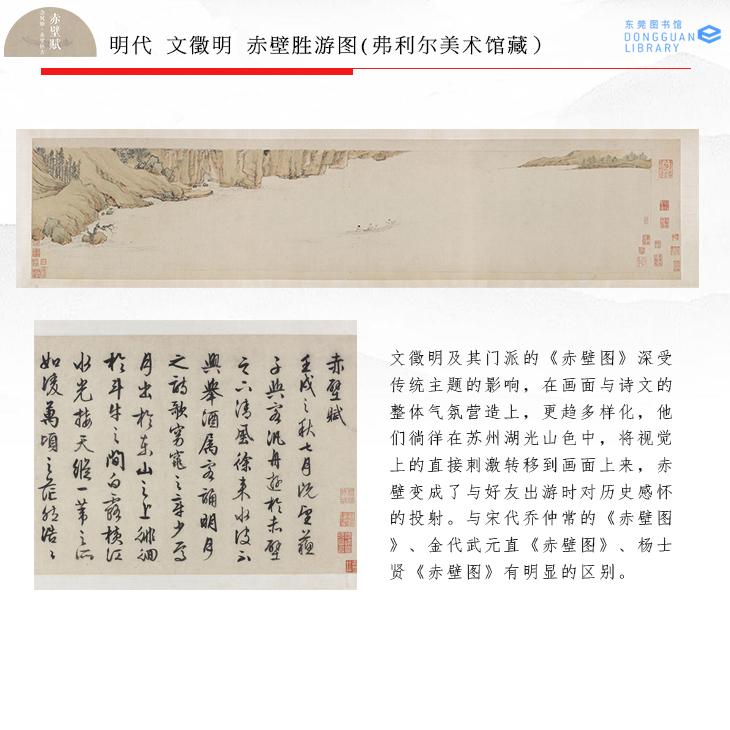 赤壁赋
明代 文徵明 赤壁胜游图(弗利尔美术馆藏）
东莞图书馆
DONGGUAN
LIBRARY
赤壁賦
壬戌之秋七月既望蘇
子與客汎舟遊於赤壁
之下清風徐來水波不
興舉酒属客誦明月
之詩歌窈窕之章少焉
月出於東山之上徘徊
於斗牛之間白露橫江
水光接天縱一葦之所
如凌萬頃之茫然浩〻
文徵明及其门派的《赤壁图》深受
传统主题的影响，在画面与诗文的
整体气氛营造上，更趋多样化，他
们徜徉在苏州湖光山色中，将视觉
上的直接刺激转移到画面上来，赤
壁变成了与好友出游时对历史感怀
的投射。与宋代乔仲常的《赤壁图
》、金代武元直《赤壁图》、杨士
贤《赤壁图》有明显的区别。